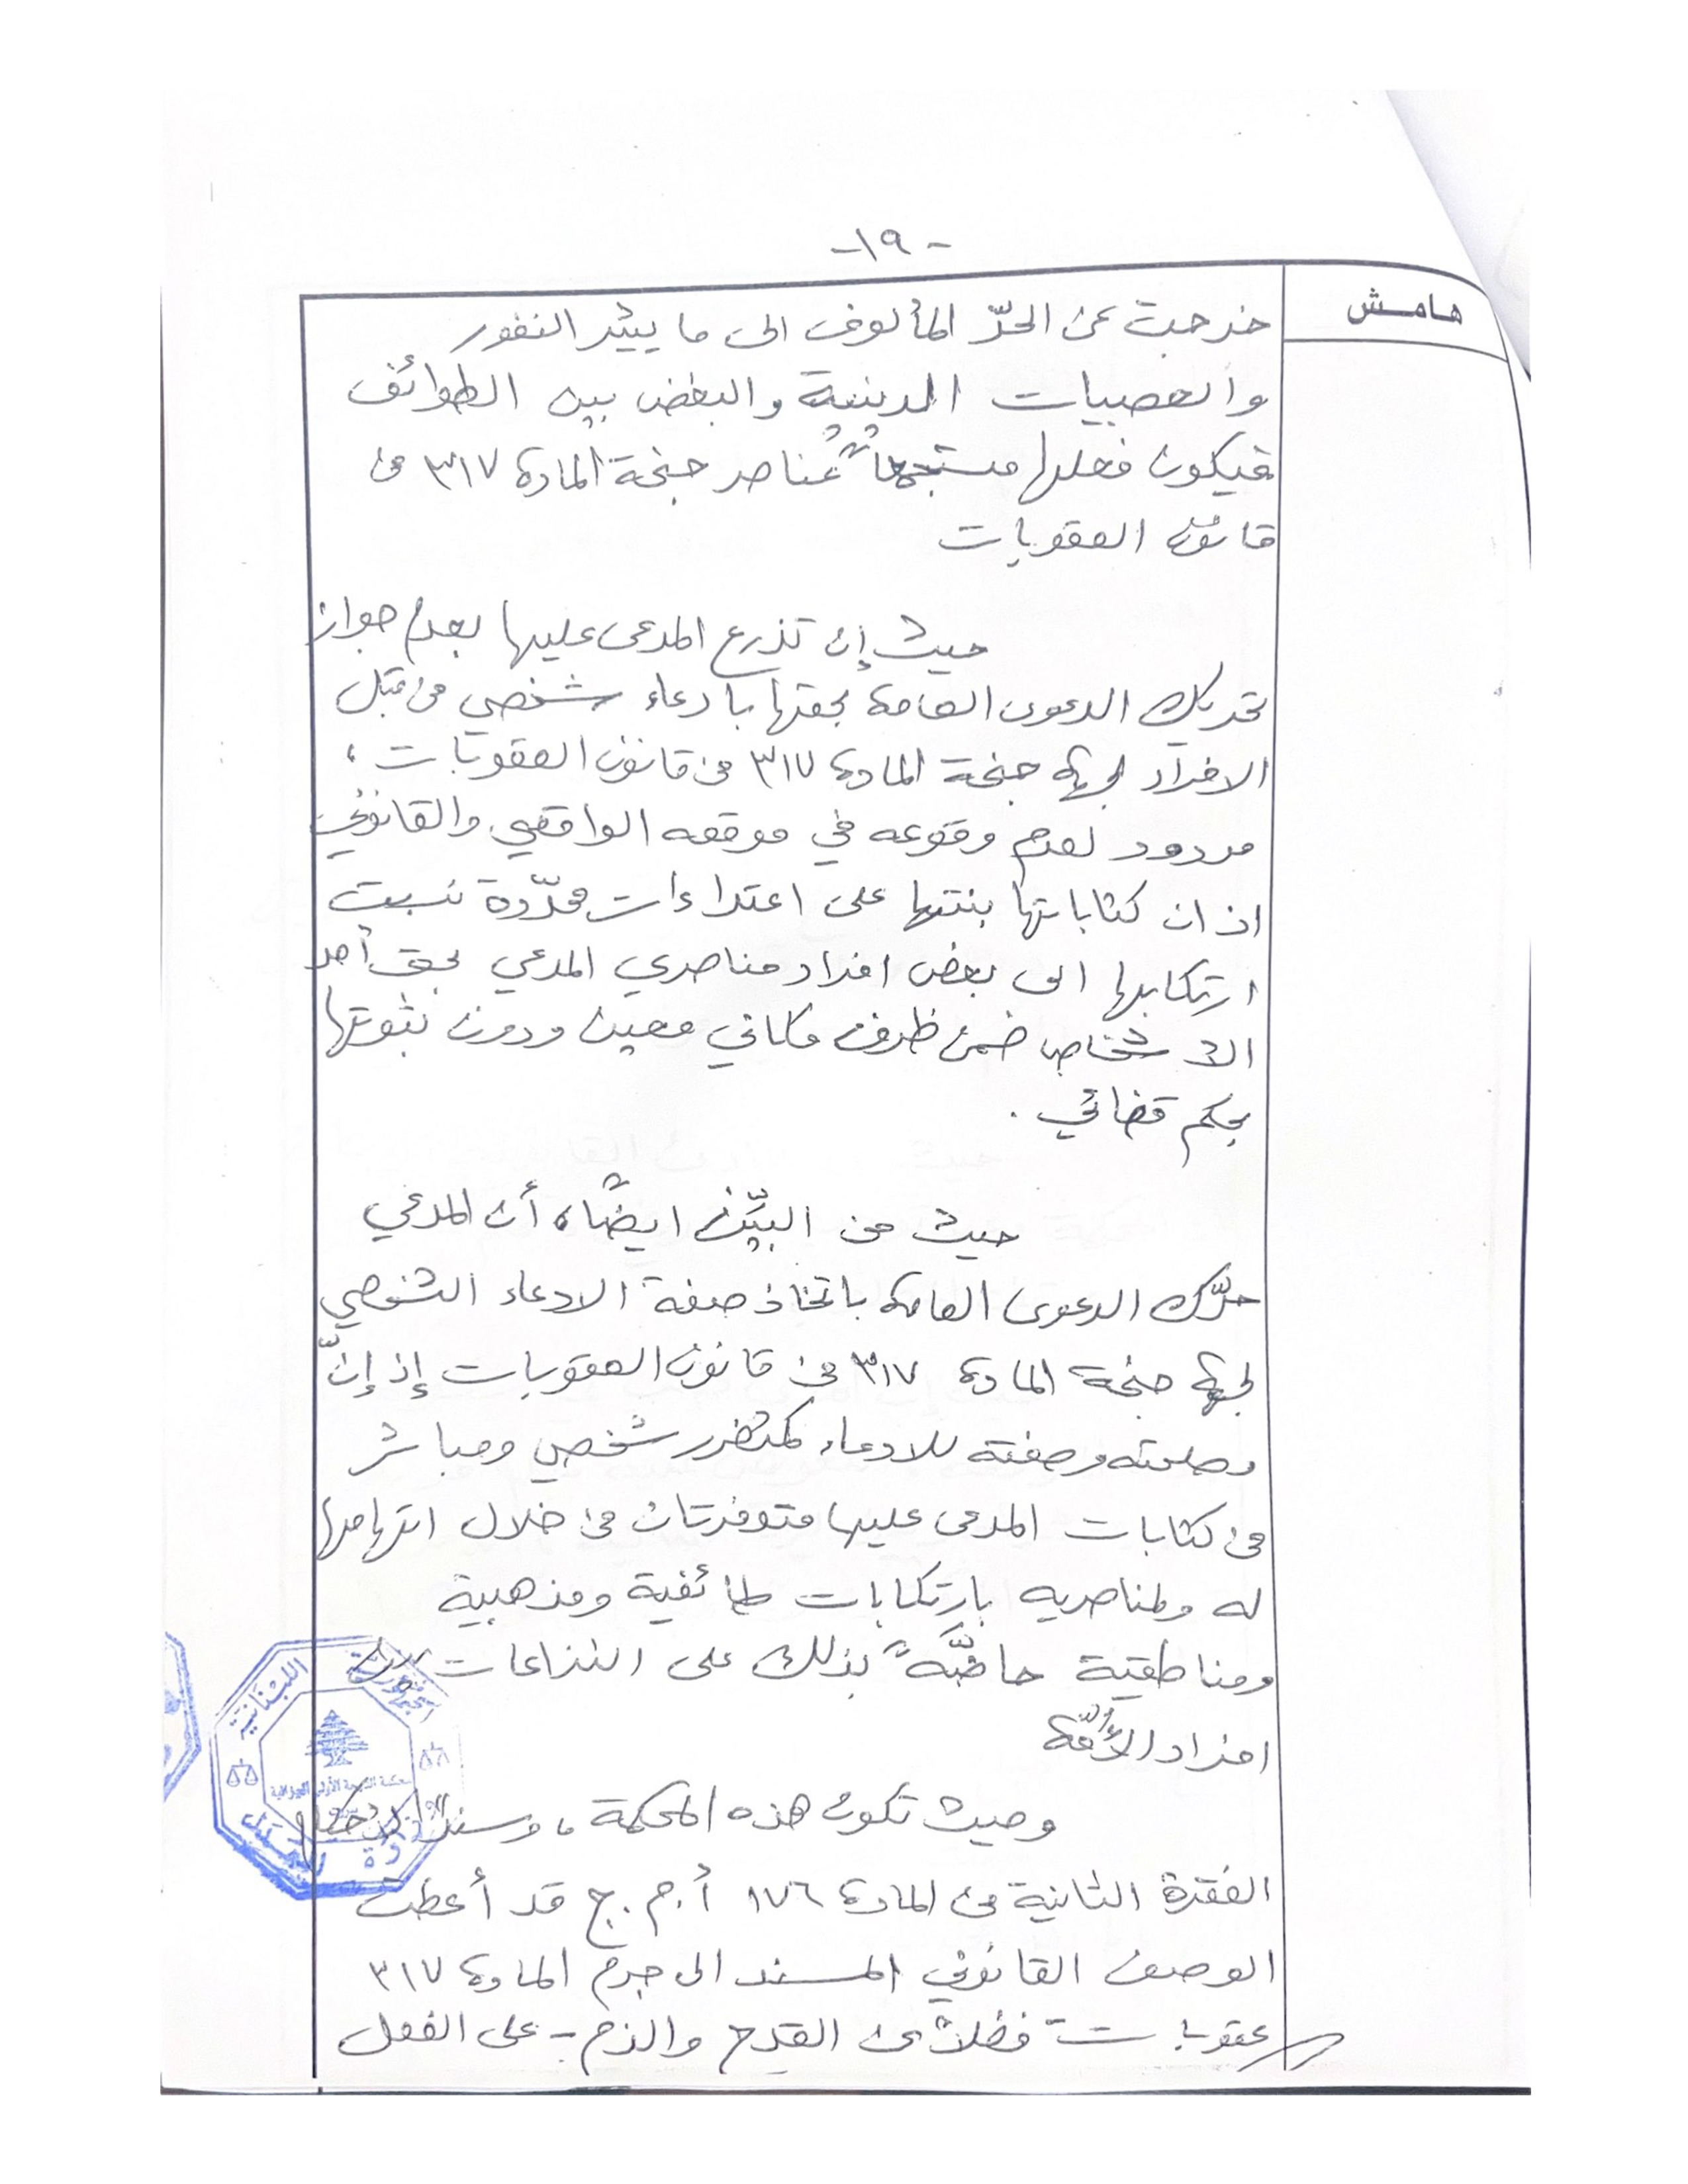 -١٩-
هامش
خرجت عن الحدّ المألوف الى ما يثير النفور
والعصبيات الدينية والبغض بين الطوائف
فيكون فعلها مستجمعاً عناصر جنحة المادة ٣١٧ من
قانون العقوبات
حيث إن تذرع المدعى عليها بعدم جواز
تحريك الدعوى العامة بحقها بادعاء شخصي من قبل
الافراد لجهة جنحة المادة ٣١٧ من قانون العقوبات ،
مردود لعدم وقوعه في موقعه الواقعي والقانوني
اذ ان كتاباتها بنتها على اعتداءات محدّدة نسبت
ارتكابها الى بعض افراد مناصري المدعي بحق أحد
الاشخاص ضمن ظرف مكاني معين ودون ثبوتها
بحكم قضائي .
حيث من البيّن ايضاً، أن المدعي
حرّك الدعوى العامة باتخاذ صفة الادعاء الشخصي
لجهة جنحة المادة ٣١٧ من قانون العقوبات إذ إنّ
مصلحته وصفته للادعاء كمتضرر شخصي ومباشر
من كتابات المدعى عليها متوفرتان من خلال اتهامها
له ولمناصريه بارتكابات طائفية ومذهبية
ومناطقية حاضّةً بذلك على النزاعات بين
افراد الأمّة
وحيث تكون هذه المحكمة ، وسنداً لأحكام
الفقرة الثانية من المادة ١٧٦ أ.م.ج قد أعطت
الوصف القانوني المسند الى جرم المادة ٣١٧
عقوبات - فضلاً عن القدح والذم - على الفعل
الجمهورية اللبنانية